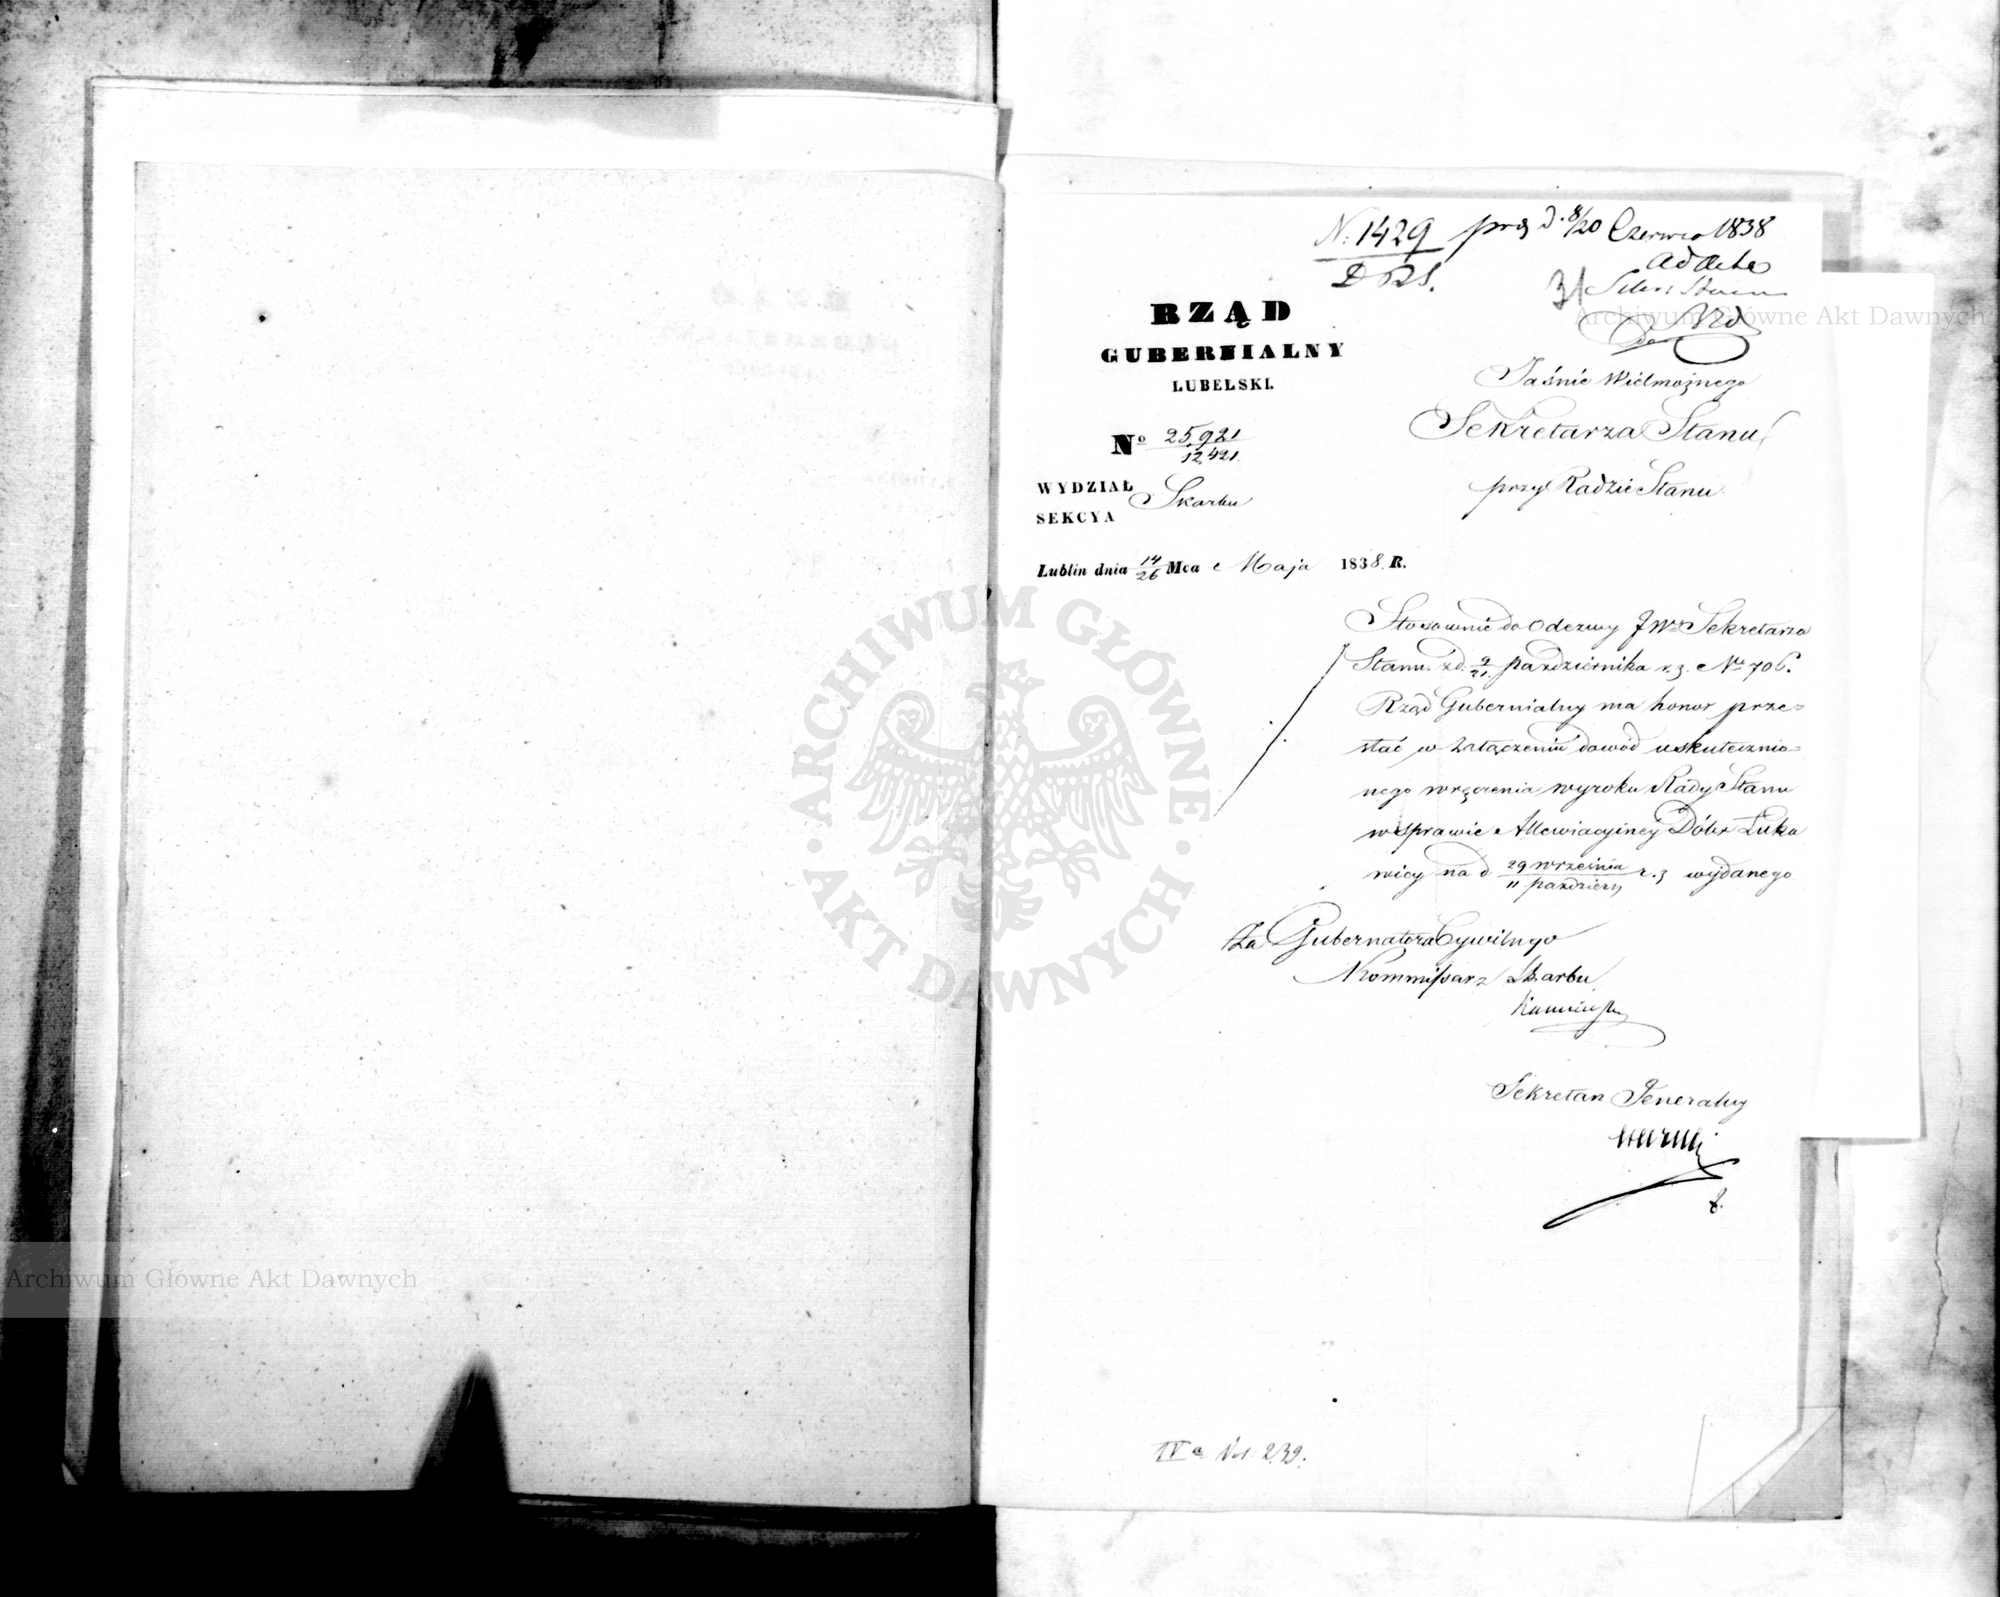 N. 1429 prz d. 8/20 Czerwca 1838
D R S.
ad acta
31
RZĄD
GUBERNIALNY
LUBELSKI.
Jaśnie Wielmożnego
Sekretarza Stanu
przy Radzie Stanu
No 25,921/12,421.
WYDZIAŁ Skarbu
SEKCYA
Lublin dnia 14/26 Mca Maja 1838. R.
Stosownie do Odezwy JWo Sekretarza
Stanu z d. 9/21 października r. z. No 706.
Rząd Gubernialny ma honor prze=
słać w załączeniu dowód uskutecznio=
nego wręczenia wyroku Rady Stanu
w sprawie Allewiacyiney Dóbr Łuka
wicy na d. 29 września/11 paździer r. z wydanego
Za Gubernatora Cywilnego
Kommissarz Skarbu
Sekretarz Jeneralny
IVa Vol: 239.
Archiwum Główne Akt Dawnych
ARCHIWUM GŁÓWNE · AKT DAWNYCH ·
Archiwum Główne Akt Dawnych